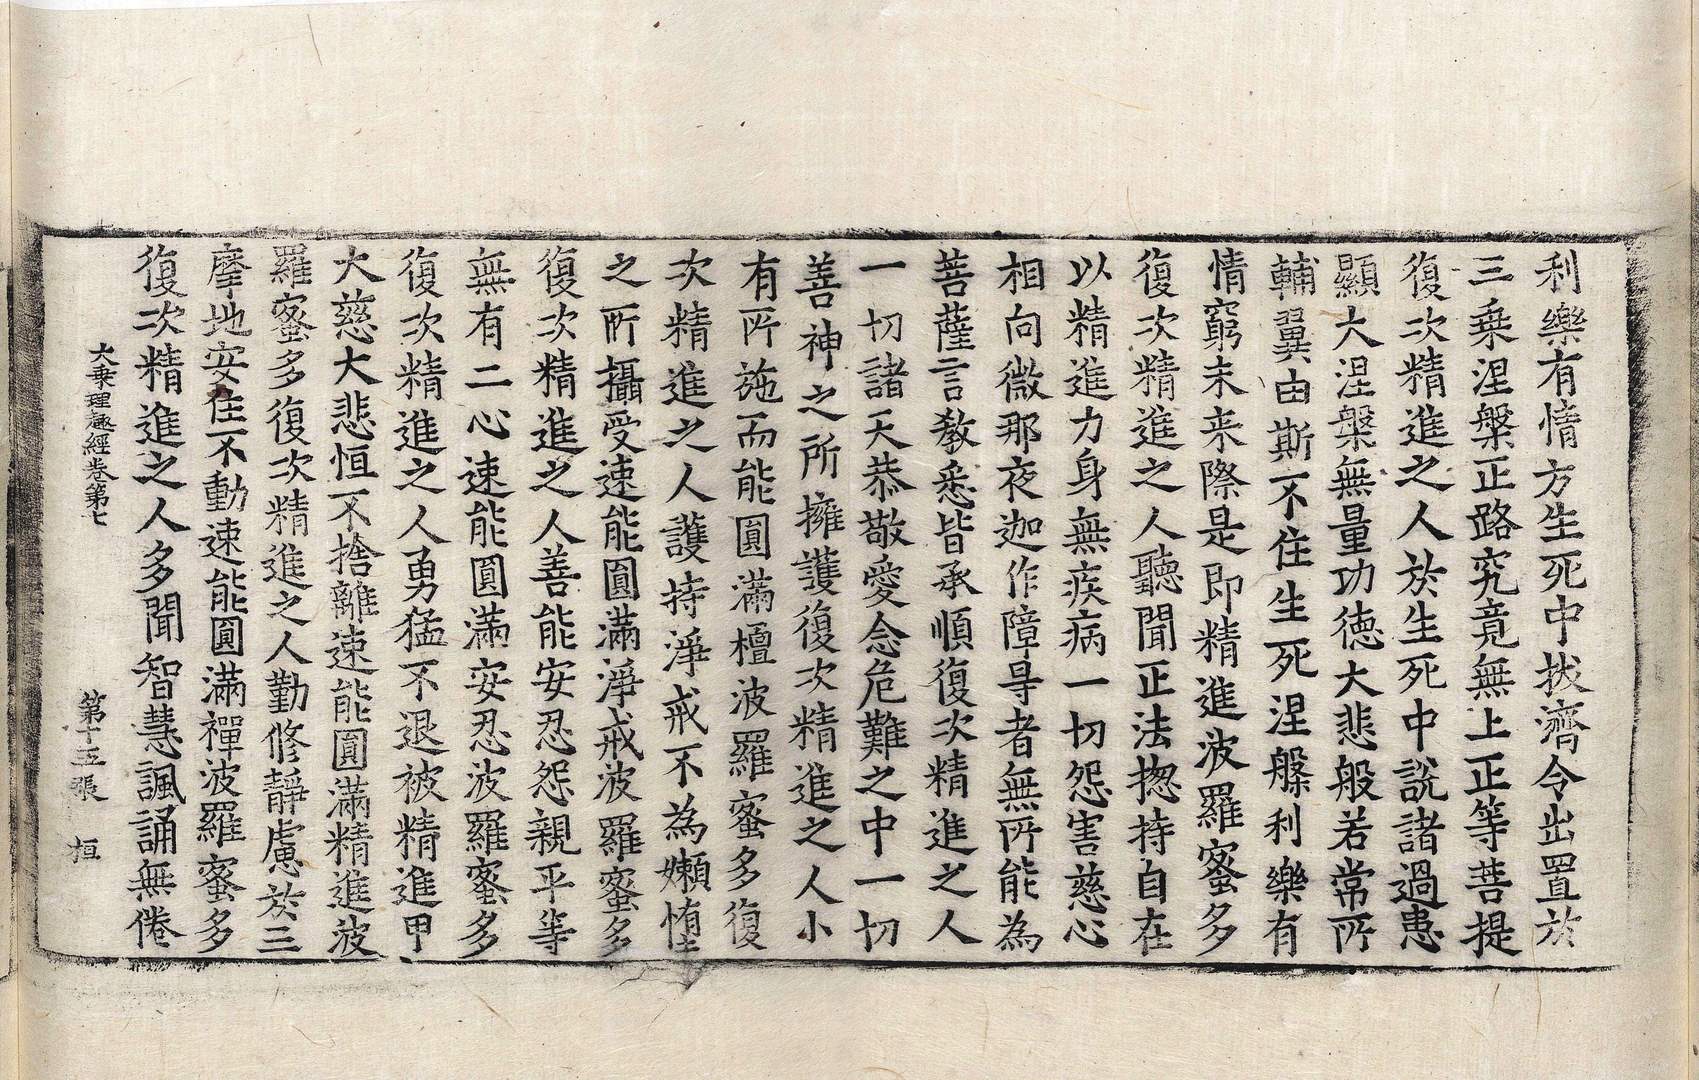 利樂有情方生死中拔濟令出置於
三乗涅槃正路究竟無上正等菩提
復次精進之人於生死中說諸過患
顯大涅槃無量功徳大悲般若常所
輔翼由斯不住生死涅槃利樂有
情窮未来際是即精進波羅蜜多
復次精進之人聽聞正法揔持自在
以精進力身無疾病一切怨害慈心
相向微那夜迦作障㝵者無所能為
菩薩言教悉皆承順復次精進之人
一切諸天恭敬愛念危難之中一切
善神之所擁護復次精進之人小
有所施而能圓滿檀波羅蜜多復
次精進之人護持淨戒不為嬾惰
之所攝受速能圓滿淨戒波羅蜜多
復次精進之人善能安忍怨親平等
無有二心速能圓滿安忍波羅蜜多
復次精進之人勇猛不退被精進甲
大慈大悲恒不捨離速能圓滿精進波
羅蜜多復次精進之人勤修靜慮於三
摩地安住不動速能圓滿禪波羅蜜多
復次精進之人多聞智慧諷誦無倦
大乗理趣經卷第七　第十五張　恒